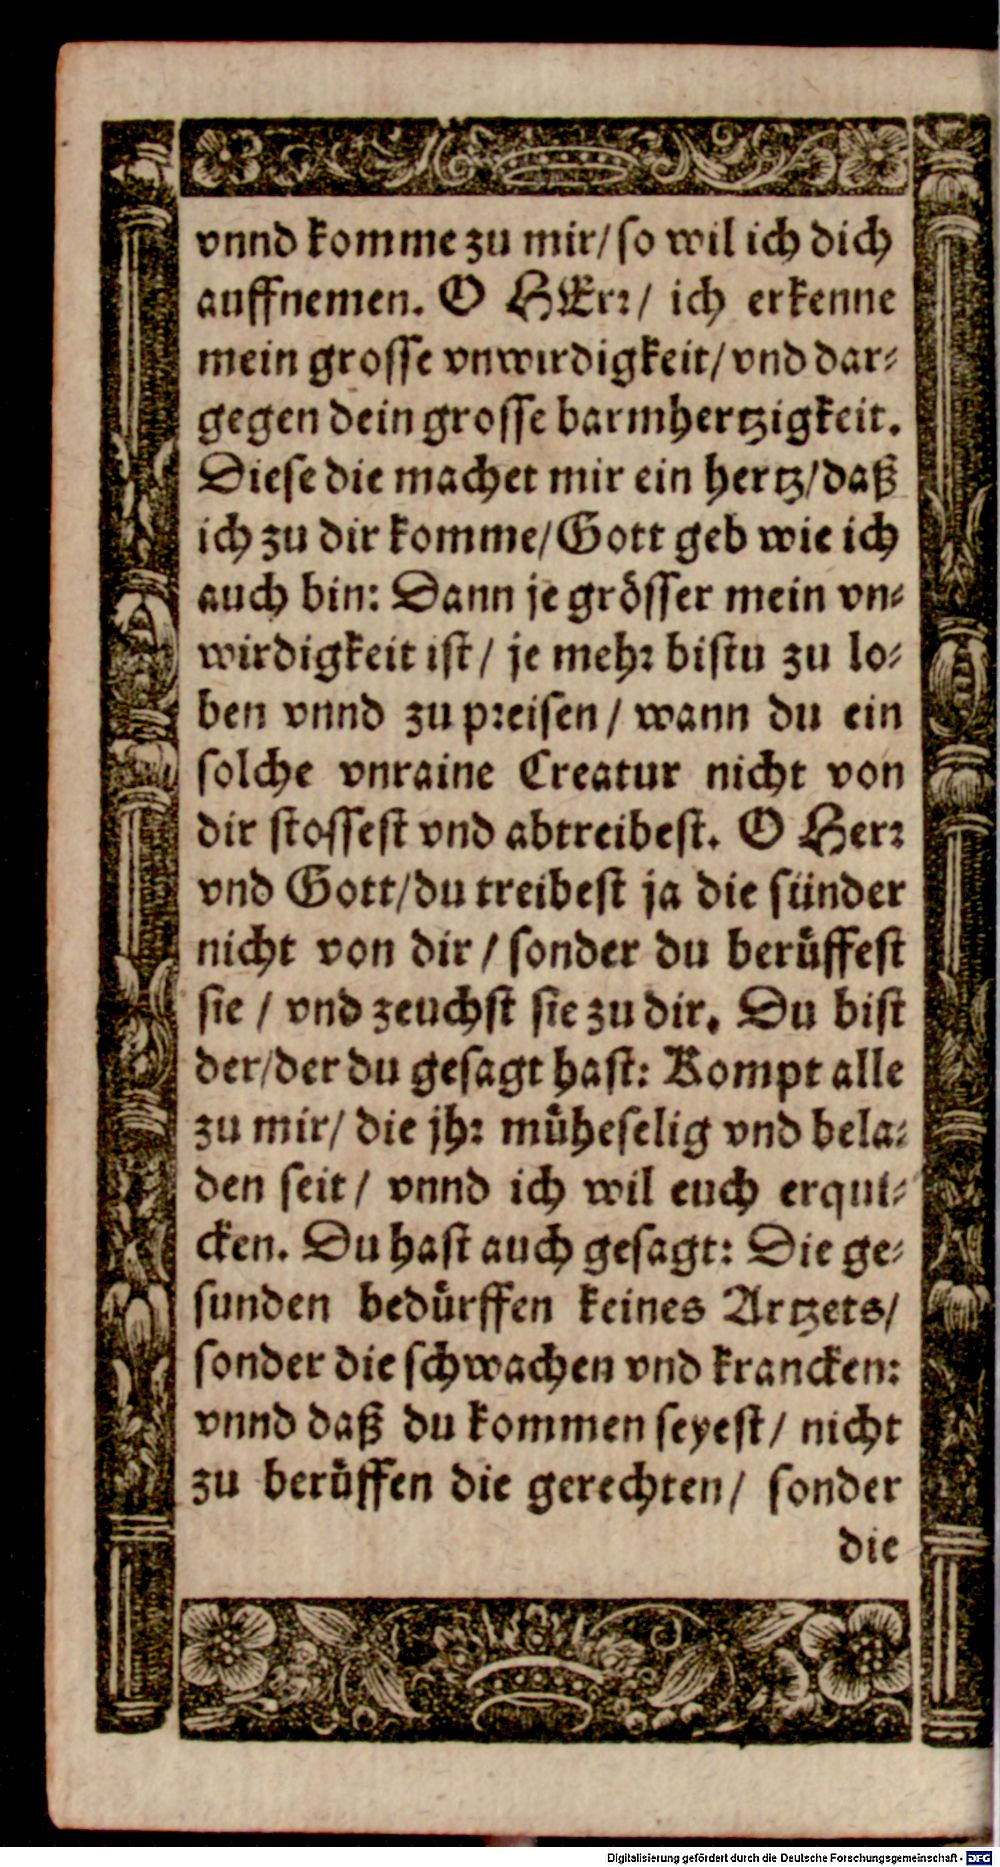 vnnd komme zu mir/ so wil ich dich
auffnemen. O HErr/ ich erkenne
mein grosse vnwirdigkeit/ vnd dar-
gegen dein grosse barmhertzigkeit.
Diese die machet mir ein hertz/ daß
ich zu dir komme/ Gott geb wie ich
auch bin: Dann je grösser mein vn-
wirdigkeit ist/ je mehr bistu zu lo-
ben vnnd zu preisen/ wann du ein
solche vnraine Creatur nicht von
dir stossest vnd abtreibest. O Herr
vnd Gott/ du treibest ja die sünder
nicht von dir/ sonder du berüffest
sie/ vnd zeuchst sie zu dir. Du bist
der/ der du gesagt hast: Kompt alle
zu mir/ die jhr müheselig vnd bela-
den seit/ vnnd ich wil euch erqui-
cken. Du hast auch gesagt: Die ge-
sunden bedürffen keines Artzets/
sonder die schwachen vnd krancken:
vnnd daß du kommen seyest/ nicht
zu berüffen die gerechten/ sonder
die
Digitalisierung gefördert durch die Deutsche Forschungsgemeinschaft - DFG